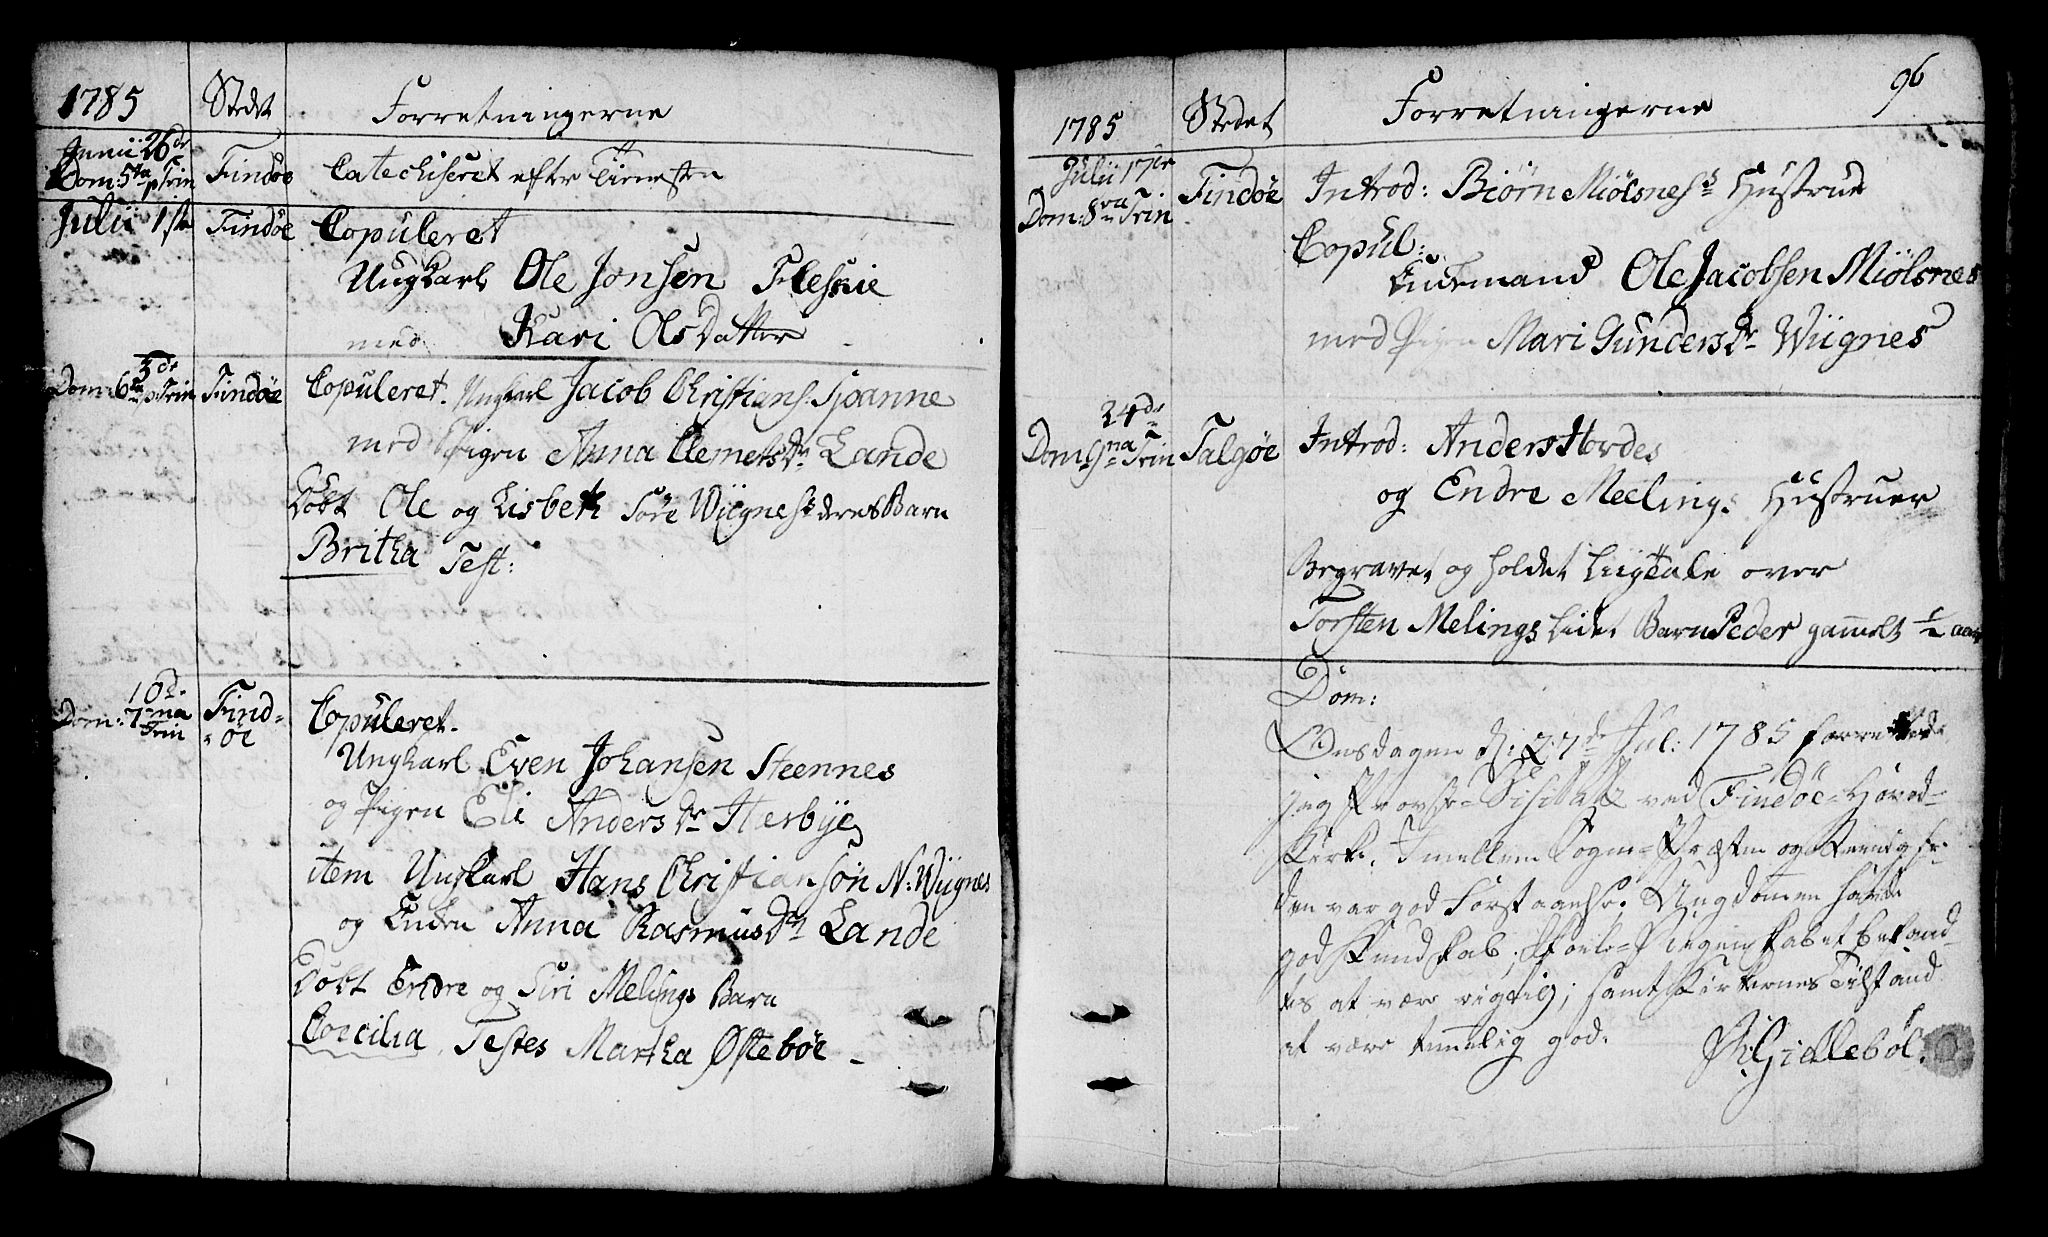 1785 Stedet Forretningerne
Junii 26de
Dom: 5ta p Trin Findöe Catechiseret efter Tienesten
Julii 1ste Findöe Copuleret
Ungkarl Ole Jonsen Fleskie
med Kari Olsdatter
3de
Dom: 6ta p: Trin Findöe Copuleret. Ungkarl Jacob Christians:
med Pigen Anna Clemetsdr Lande
Döbt Ole og Lisbeth Söre Wiignes's deres Barn
Britha Test:
10de
Dom: 7ma Trin Find-
öe Copuleret.
Ungkarl Even Johansen Steennes
og Pigen Eli Andersdr Hesbye
item Ungkarl Hans Christiansön N: Wiignes
og Enken Anna Rasmusdr Lande
Döbt Endre og Siri Melings Barn
Coecilia Testes Martha Østeböe
96
1785 Stedet Forretningerne
Julii 17de
Dom: 8va Trin Findöe Introd: Biörn Miölsnes's Hustrue
Copul:
Enkemand Ole Jacobsen Miölsnes
med Pigen Mari Gundersdr Wiignes
24de
Dom: 9na Trin Talgöe Introd: Anders Hordes
og Endre Meelings Hustruer
Begravet og holdet Liigtale over
Torsten Melings lidet Barn Peder gammelt 1/2 aar
Dom:
Onsdagen d: 27de Jul: 1785 forrettede
jeg Provste-Visitatz ved Findöe-Hoved-
Kirke. Imellem Sogne-Præsten og Menighe-
den var god Forstaaelse. Ungdommen havde
god Kundskab; Skole- befand-
tes at være rigtig; samt Kirkernes Tilstand
at være temmelig god.
Gielleböl.